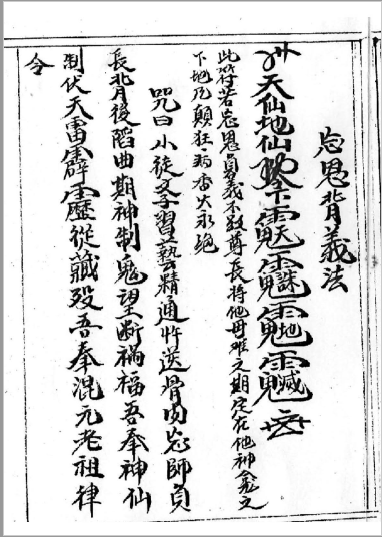 忘恩背義法
天仙地仙
此符若忘恩負義不敬尊長將他母难之期定在他神龛之
下地乃顛狂香火永绝
咒曰小徒學習藝精通忤逆骨肉忘師負
長背後謟曲期神制鬼望断禍福吾奉神仙
制伏天雷霹靂從藏殁吾奉混元老祖律
令